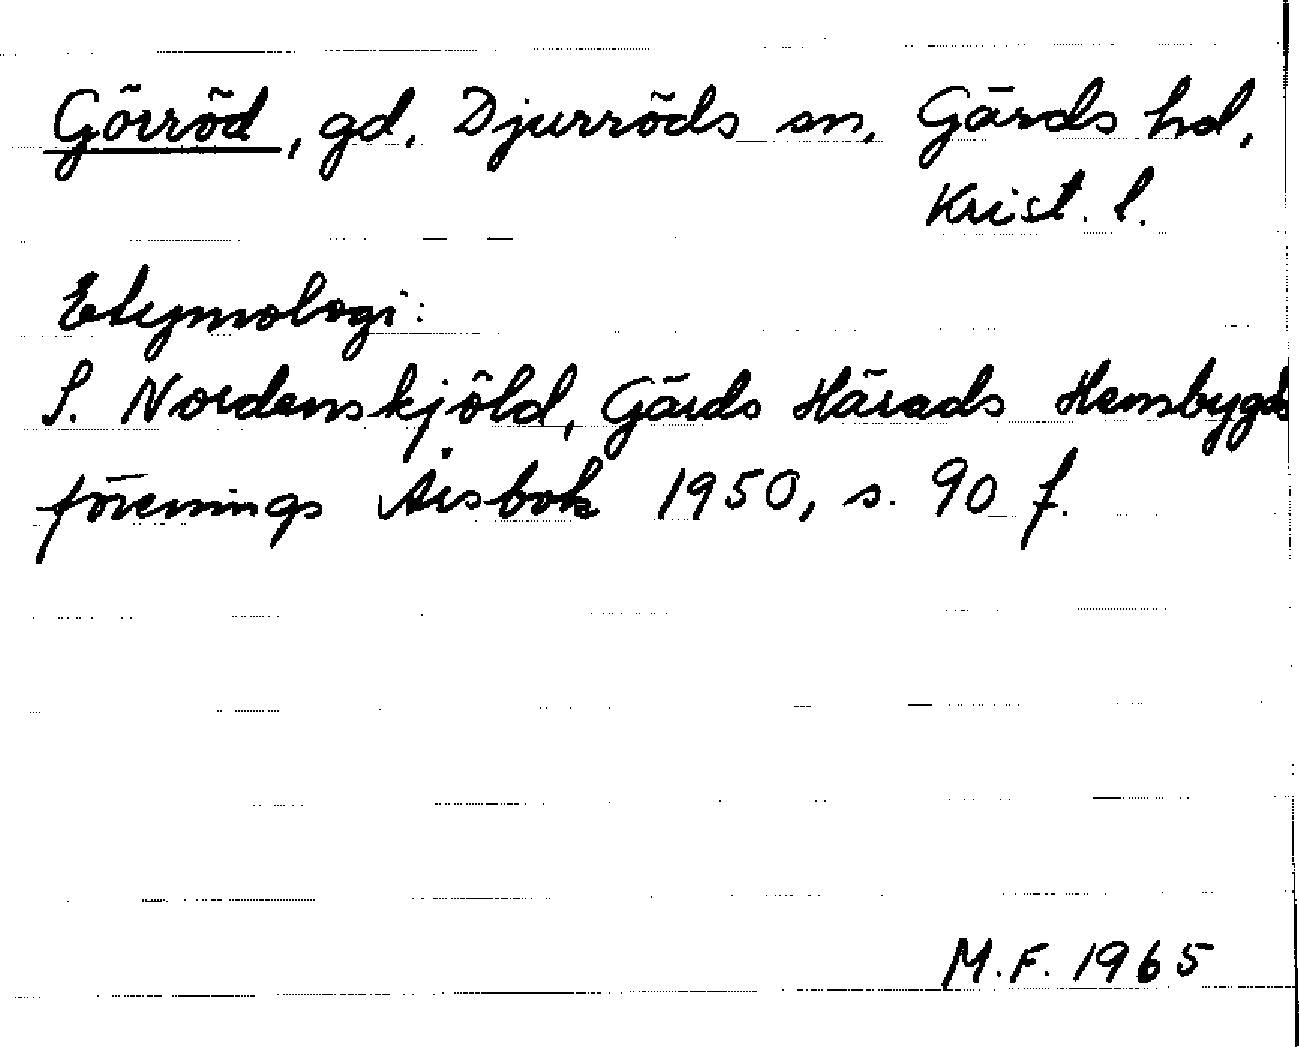 Görröd, gd. Djurröds sn, Gärds hd,
Krist. l.
Etymologi:
S. Nordenskjöld, Gärds Härads Hembygds
förenings Årsbok 1950, s. 90 f.
M.F. 1965